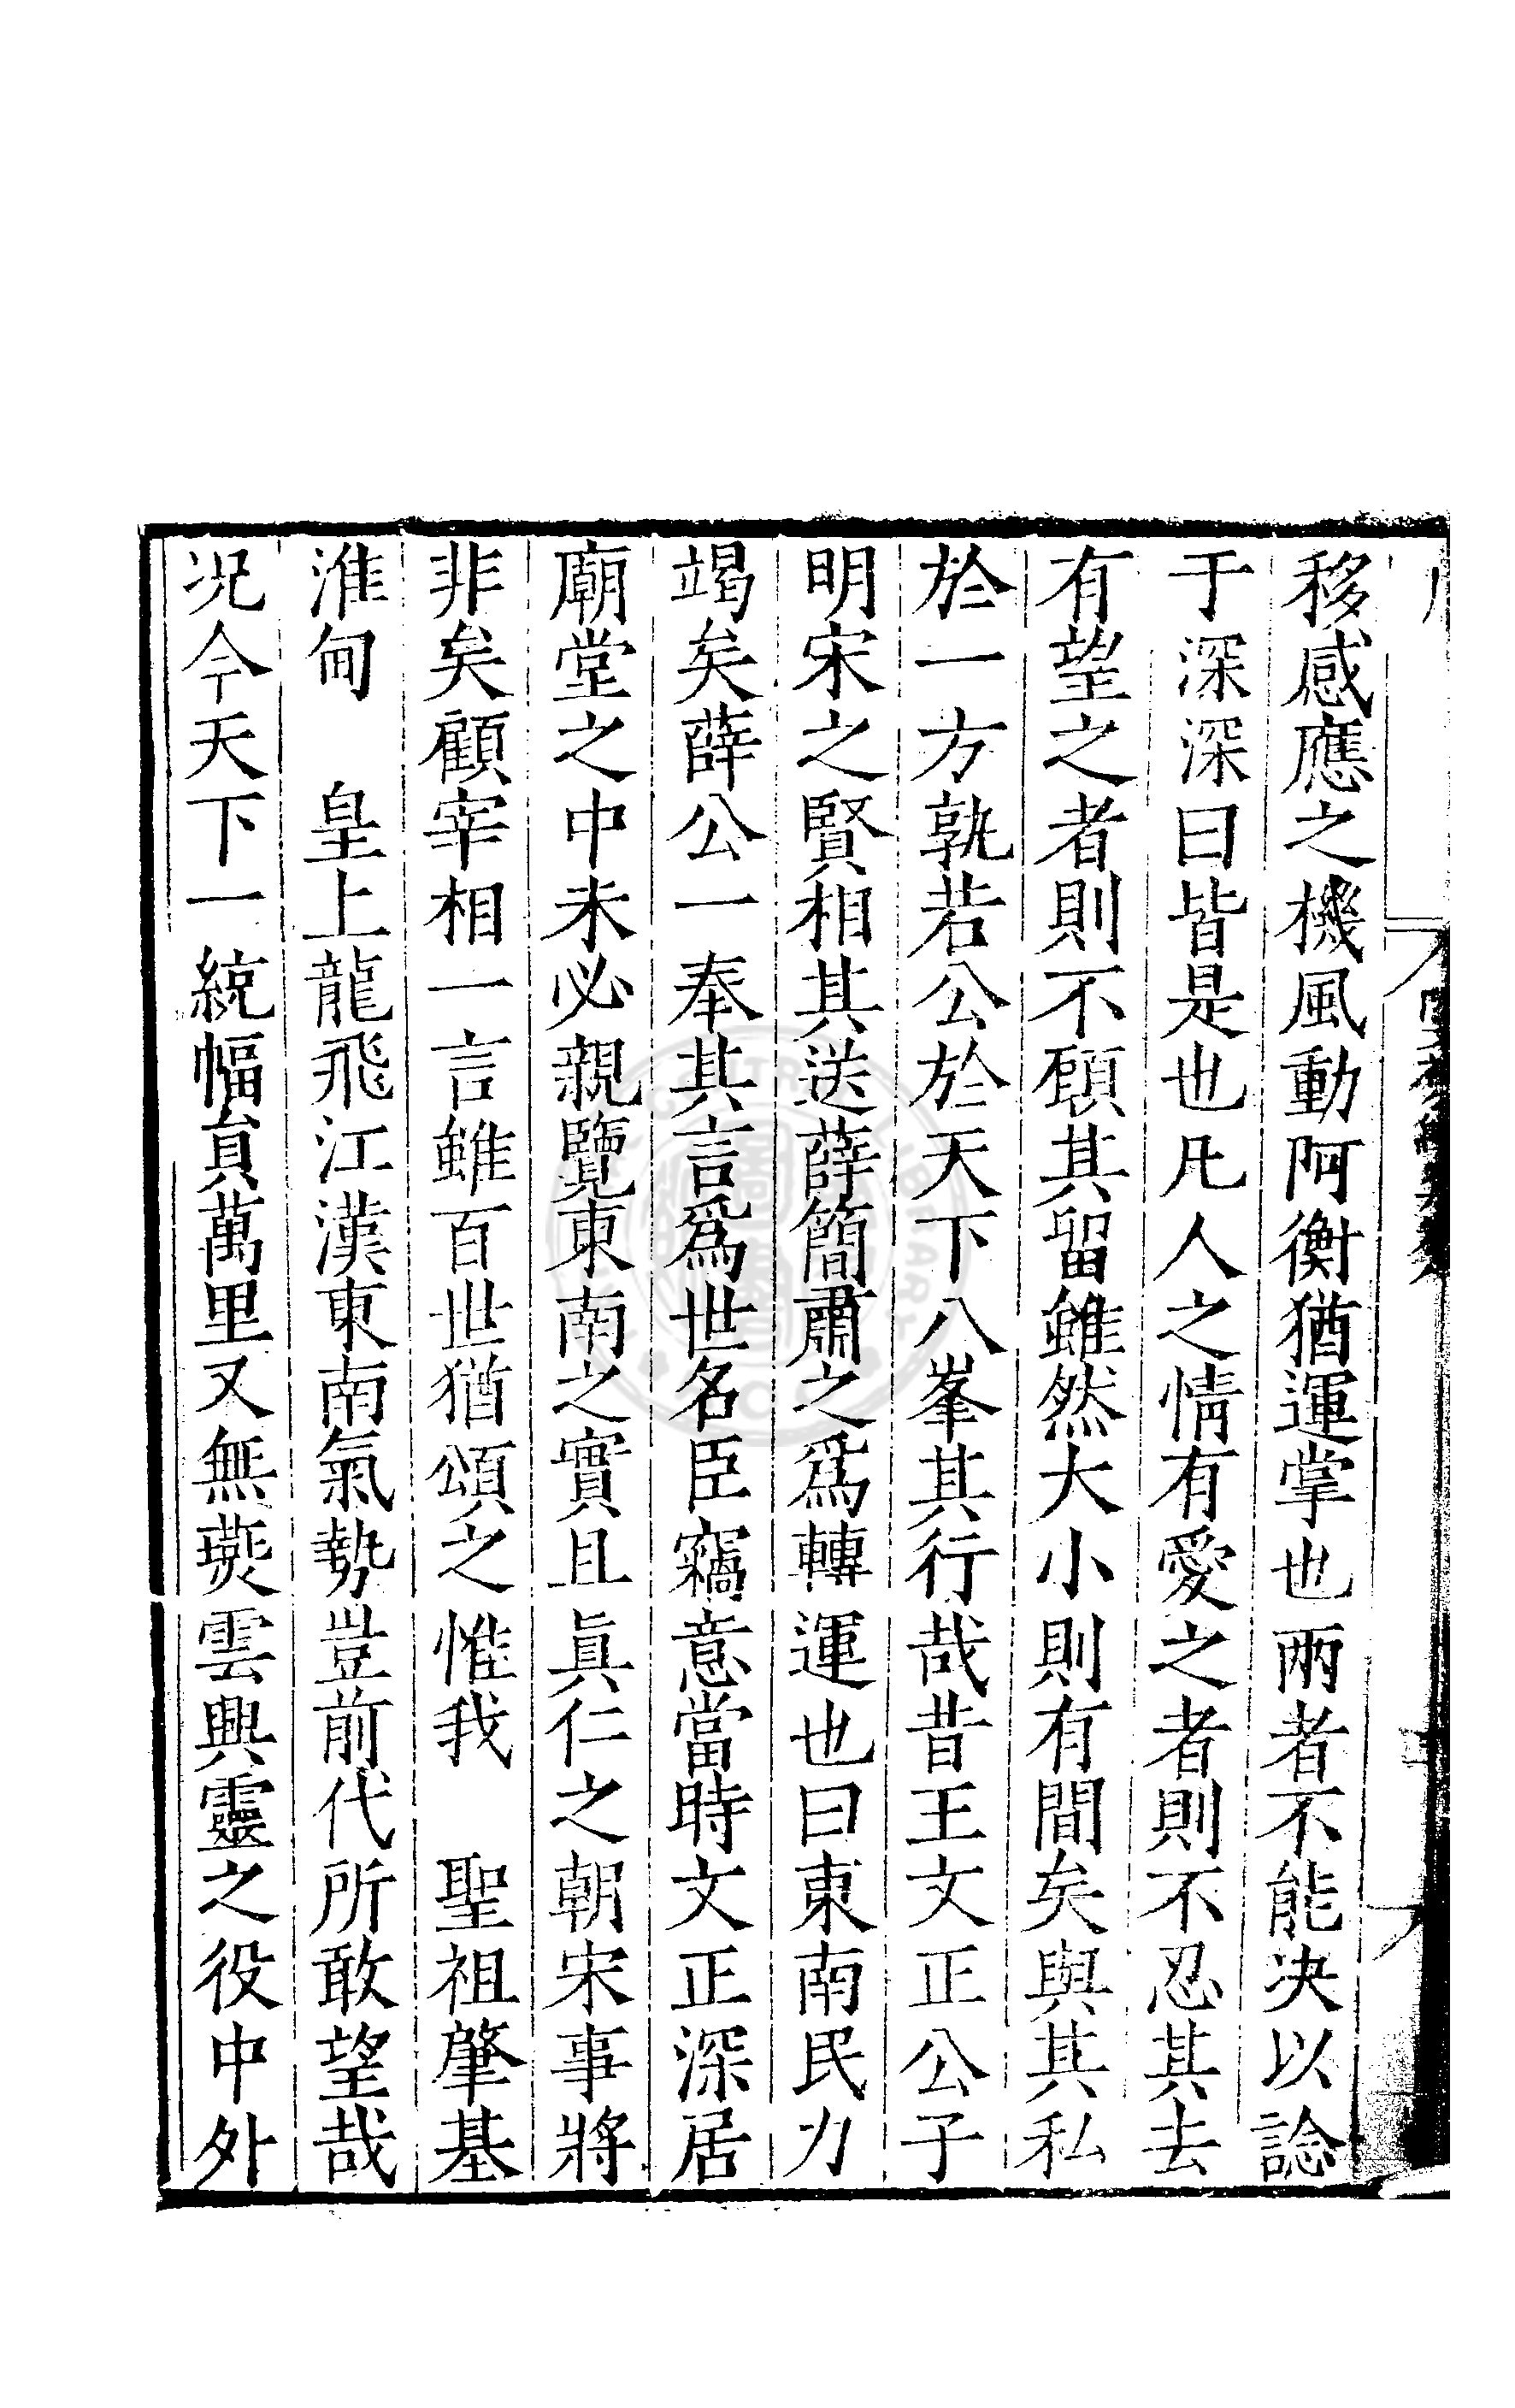 移感應之機風動阿衡猶運掌也兩者不能決以諗
于深深曰皆是也凡人之情有愛之者則不忍其去
有望之者則不顧其留雖然大小則有間矣與其私
於一方孰若公於天下八峯其行哉昔王文正公子
明宋之賢相其送薛簡肅之爲轉運也曰東南民力
竭矣薛公一奉其言爲世名臣竊意當時文正深居
廟堂之中未必親覽東南之實且眞仁之朝宋事將
非矣顧宰相一言雖百世猶頌之惟我　聖祖肇基
淮甸　皇上龍飛江漢東南氣勢豈前代所敢望哉
况今天下一統幅員萬里又無燕雲興靈之役中外